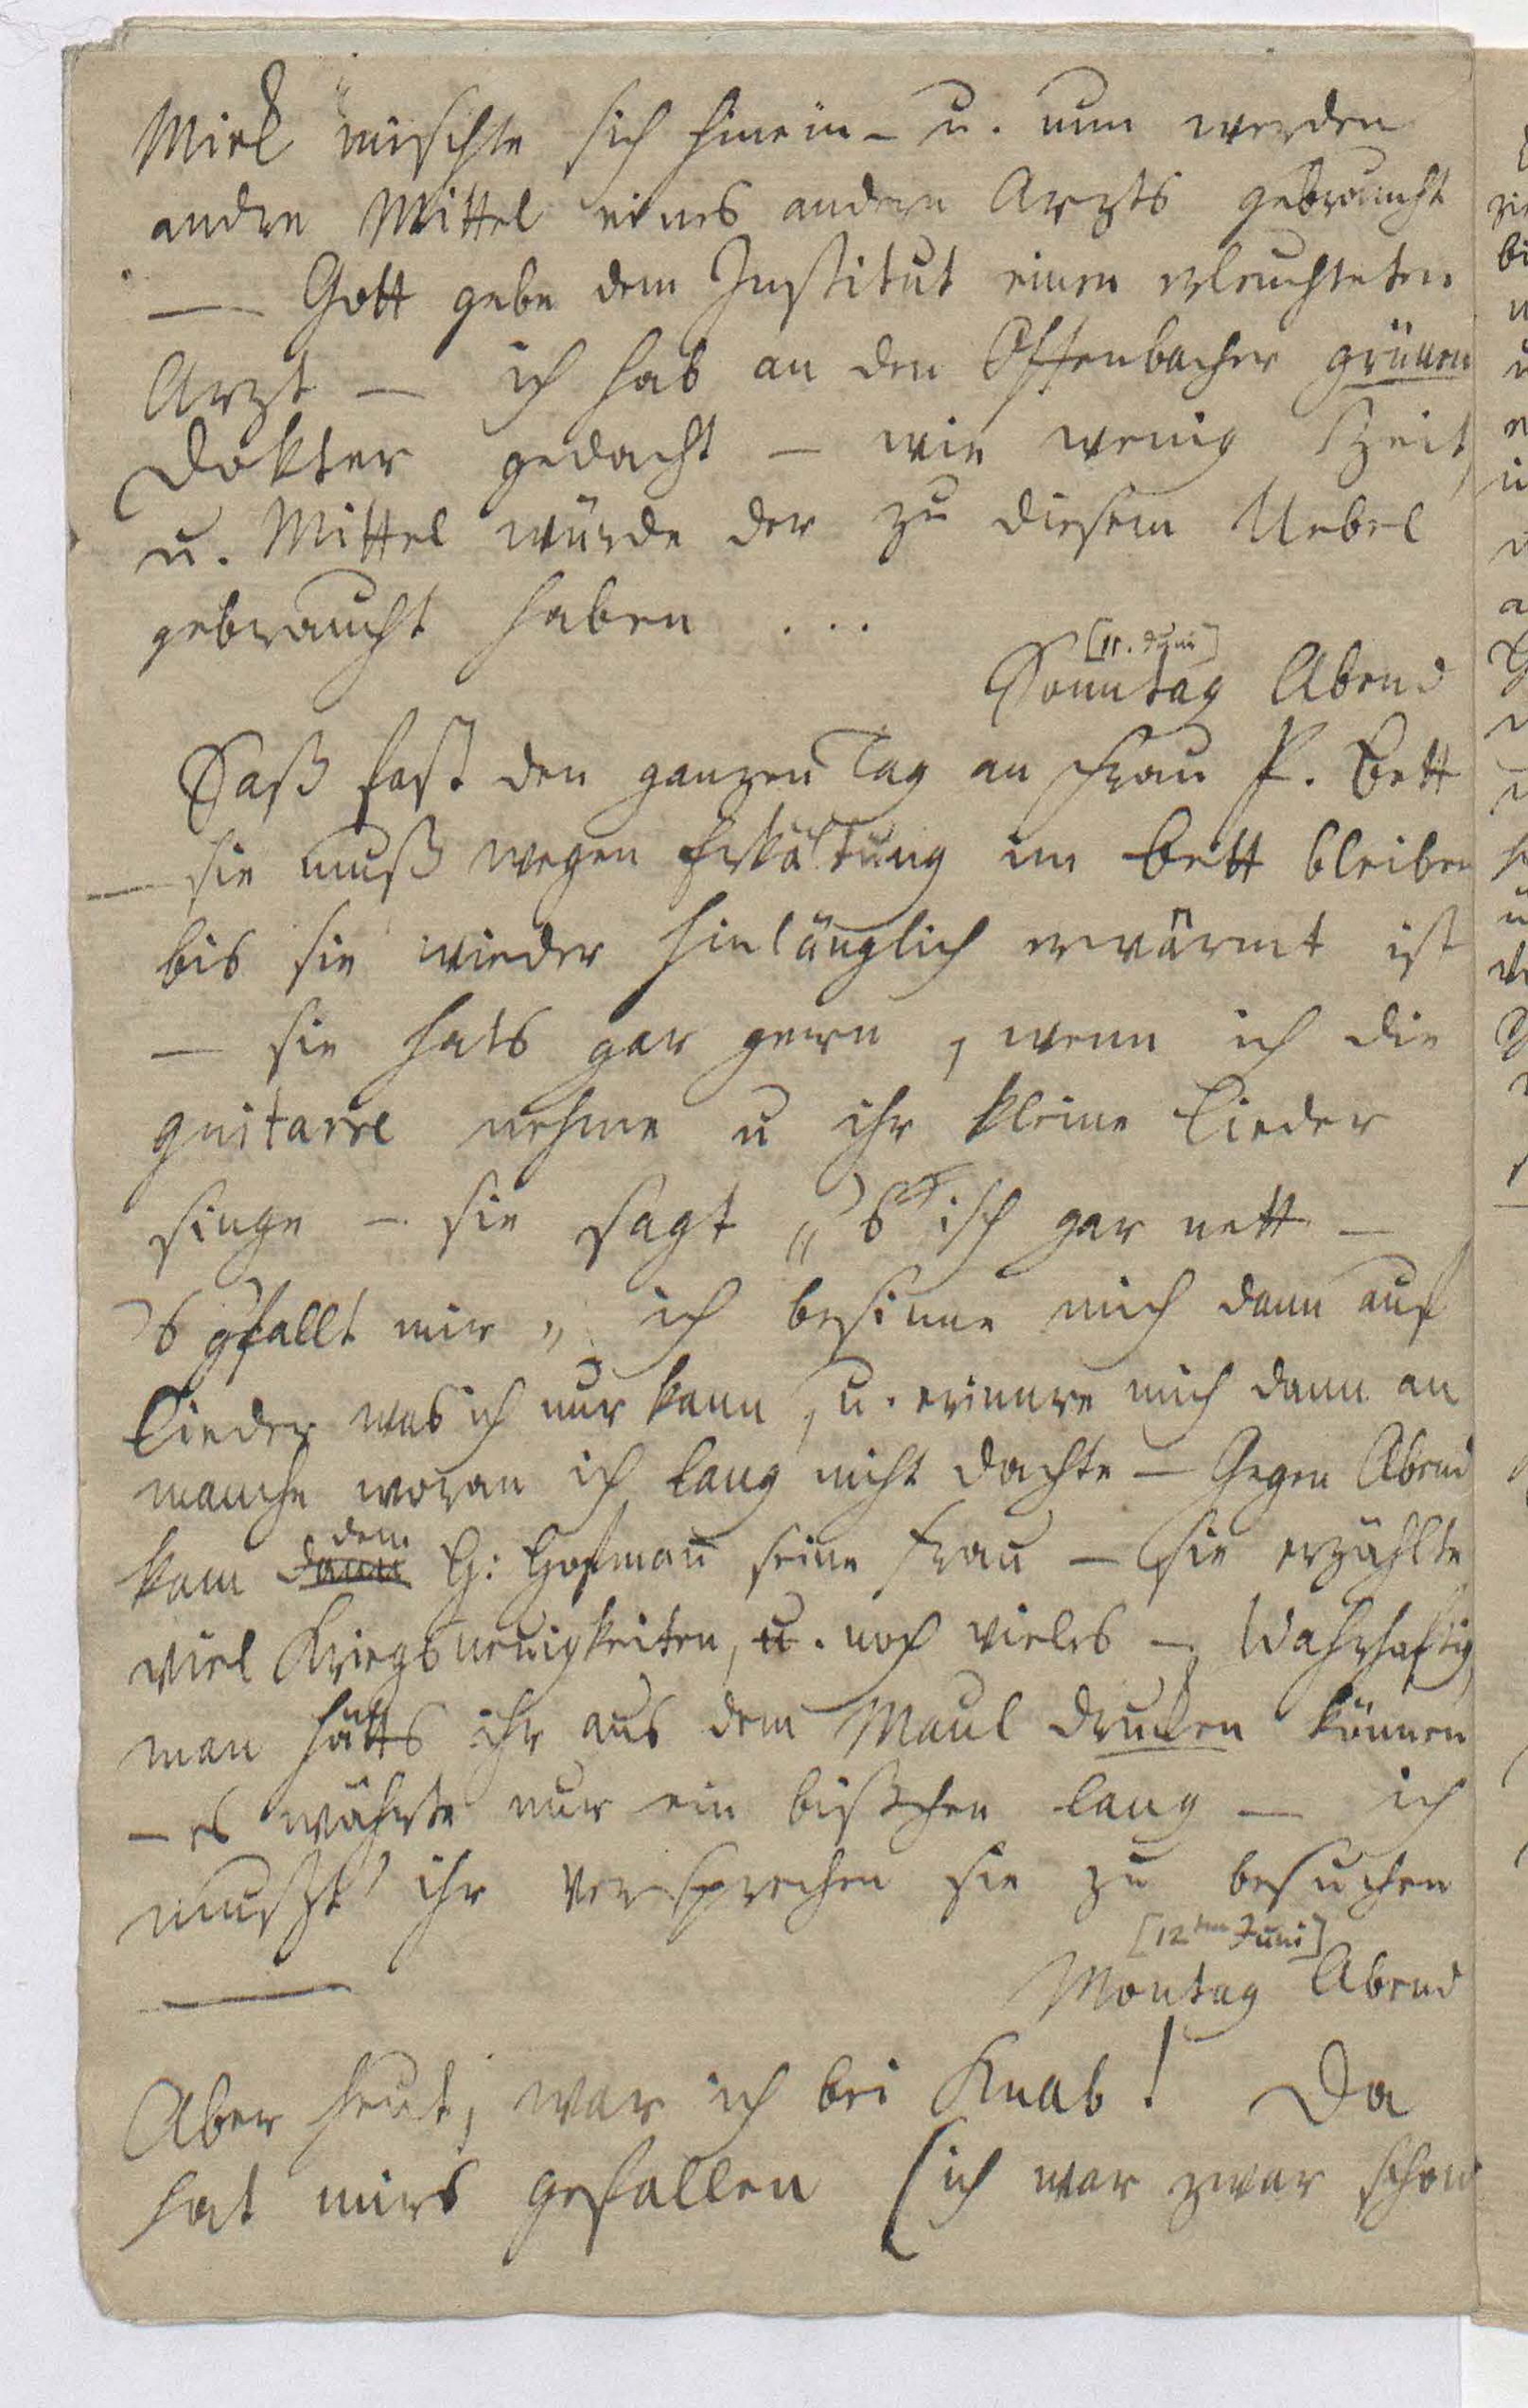 Mieg mischte sich hinein - u. nun werden
andre Mittel eines andern Arzts gebraucht
— Gott gebe dem Institut einen erleuchteten
Arzt — ich hab an den Offenbacher grünen
Dokter gedacht — wie wenig Zeit,
u. Mittel würde der zu diesem Uebel
gebraucht haben ...
[11. Juni]
Sonntag Abend
Saß fast den ganzen Tag an Frau P. Bett
— sie muß wegen Erkältung im Bett bleiben
bis sie wieder hinlänglich erwärmt ist
— sie hats gar gern, wenn ich die
guitarre nehme u ihr kleine Lieder
singe — sie sagt „'s isch gar nett —
's gfallt mir„ ich besinne mich dann auf
Lieder was ich nur kann, u. erinnre mich dann an
manche woran ich lang nicht dachte — Gegen Abend
kam dann dem H: Hofmañ seine Frau — sie erzählte
viel Kriegsneuigkeiten, u. noch vieles — Wahrhaftig,
man hätts ihr aus dem Maul drucken können
— es währte nur ein bißchen lang — ich
mußt' ihr versprechen sie zu besuchen
[12ten Juni]
— Montag Abend
Aber heut, war ich bei Knab! Da
hat mirs gefallen (ich war zwar schon